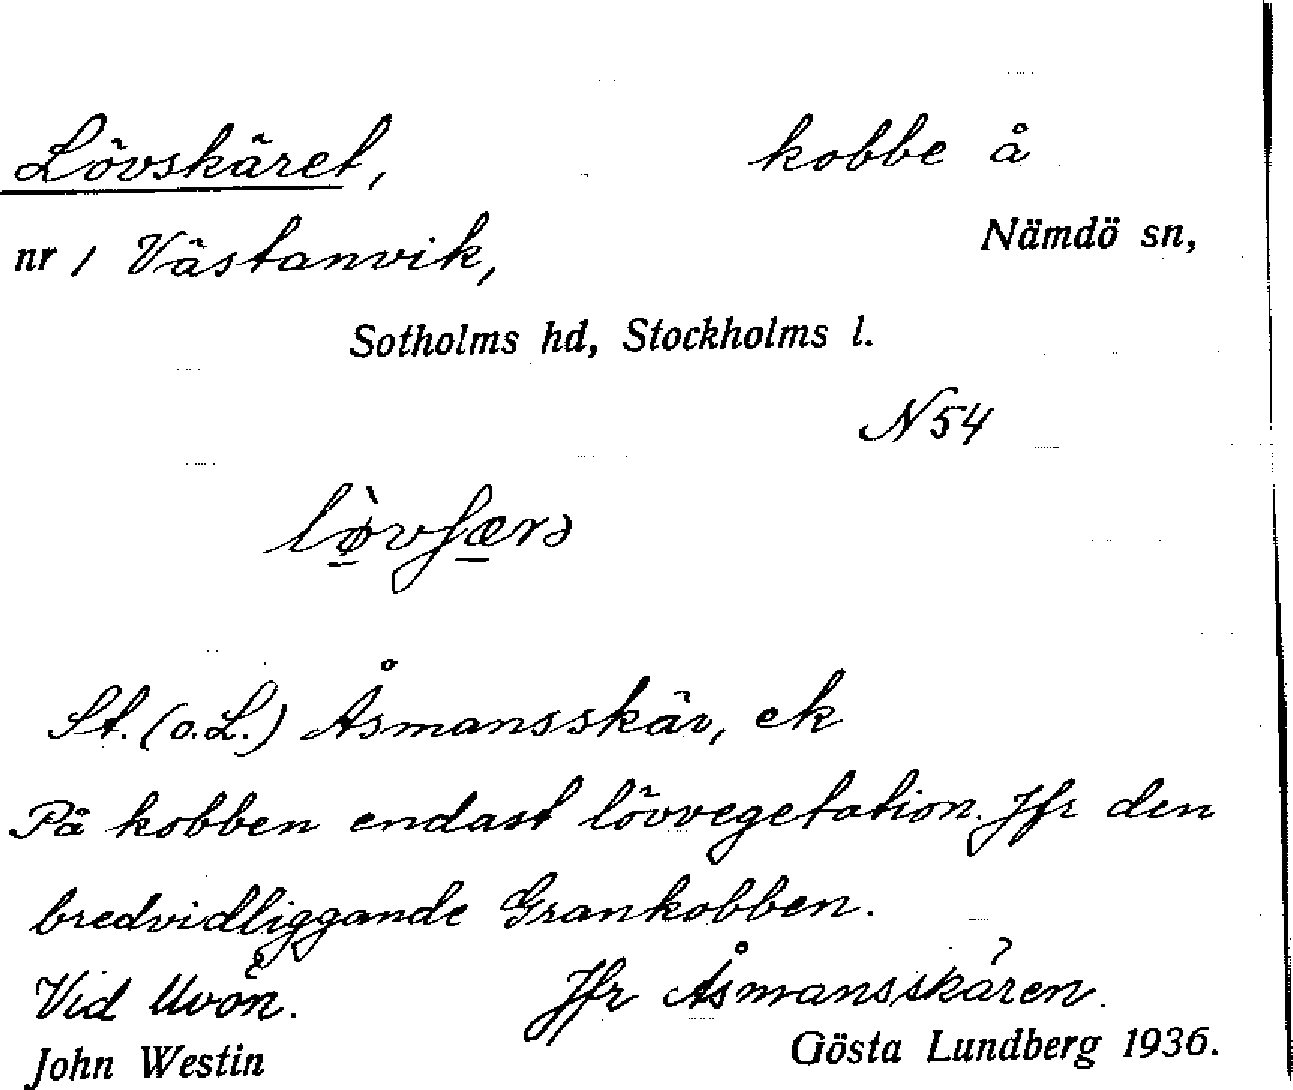 Lövskäret, kobbe å
nr 1 Västanvik, Nämdö sn,
Sotholms hd, Stockholms l.
N54
St. (o.L.) Åsmansskär, ek
På kobben endast lövvegetation. Jfr den
bredvidliggande Grankobben.
Vid Uvön. Jfr Åsmansskären.
John Westin Gösta Lundberg 1936.